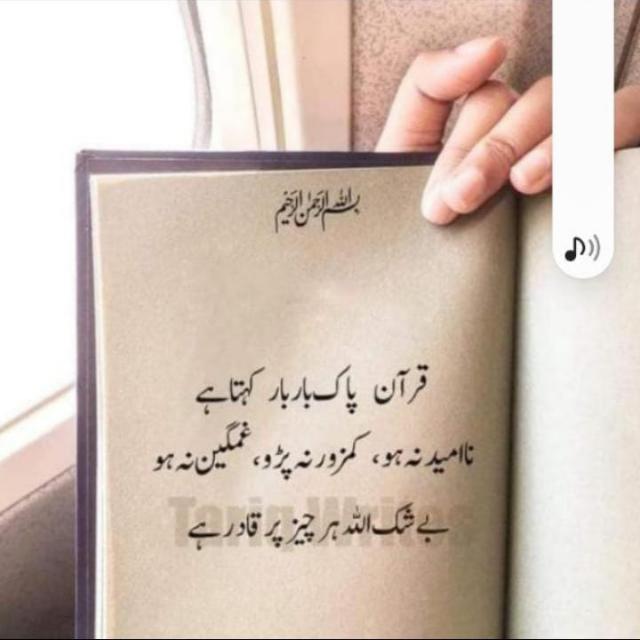 بسم الله الرحمن الرحیم
قرآن پاک بار بار کہتا ہے
ناامید نہ ہو، کمزور نہ پڑو، غمگین نہ ہو
بے شک اللہ ہر چیز پر قادر ہے
Tariq Writes